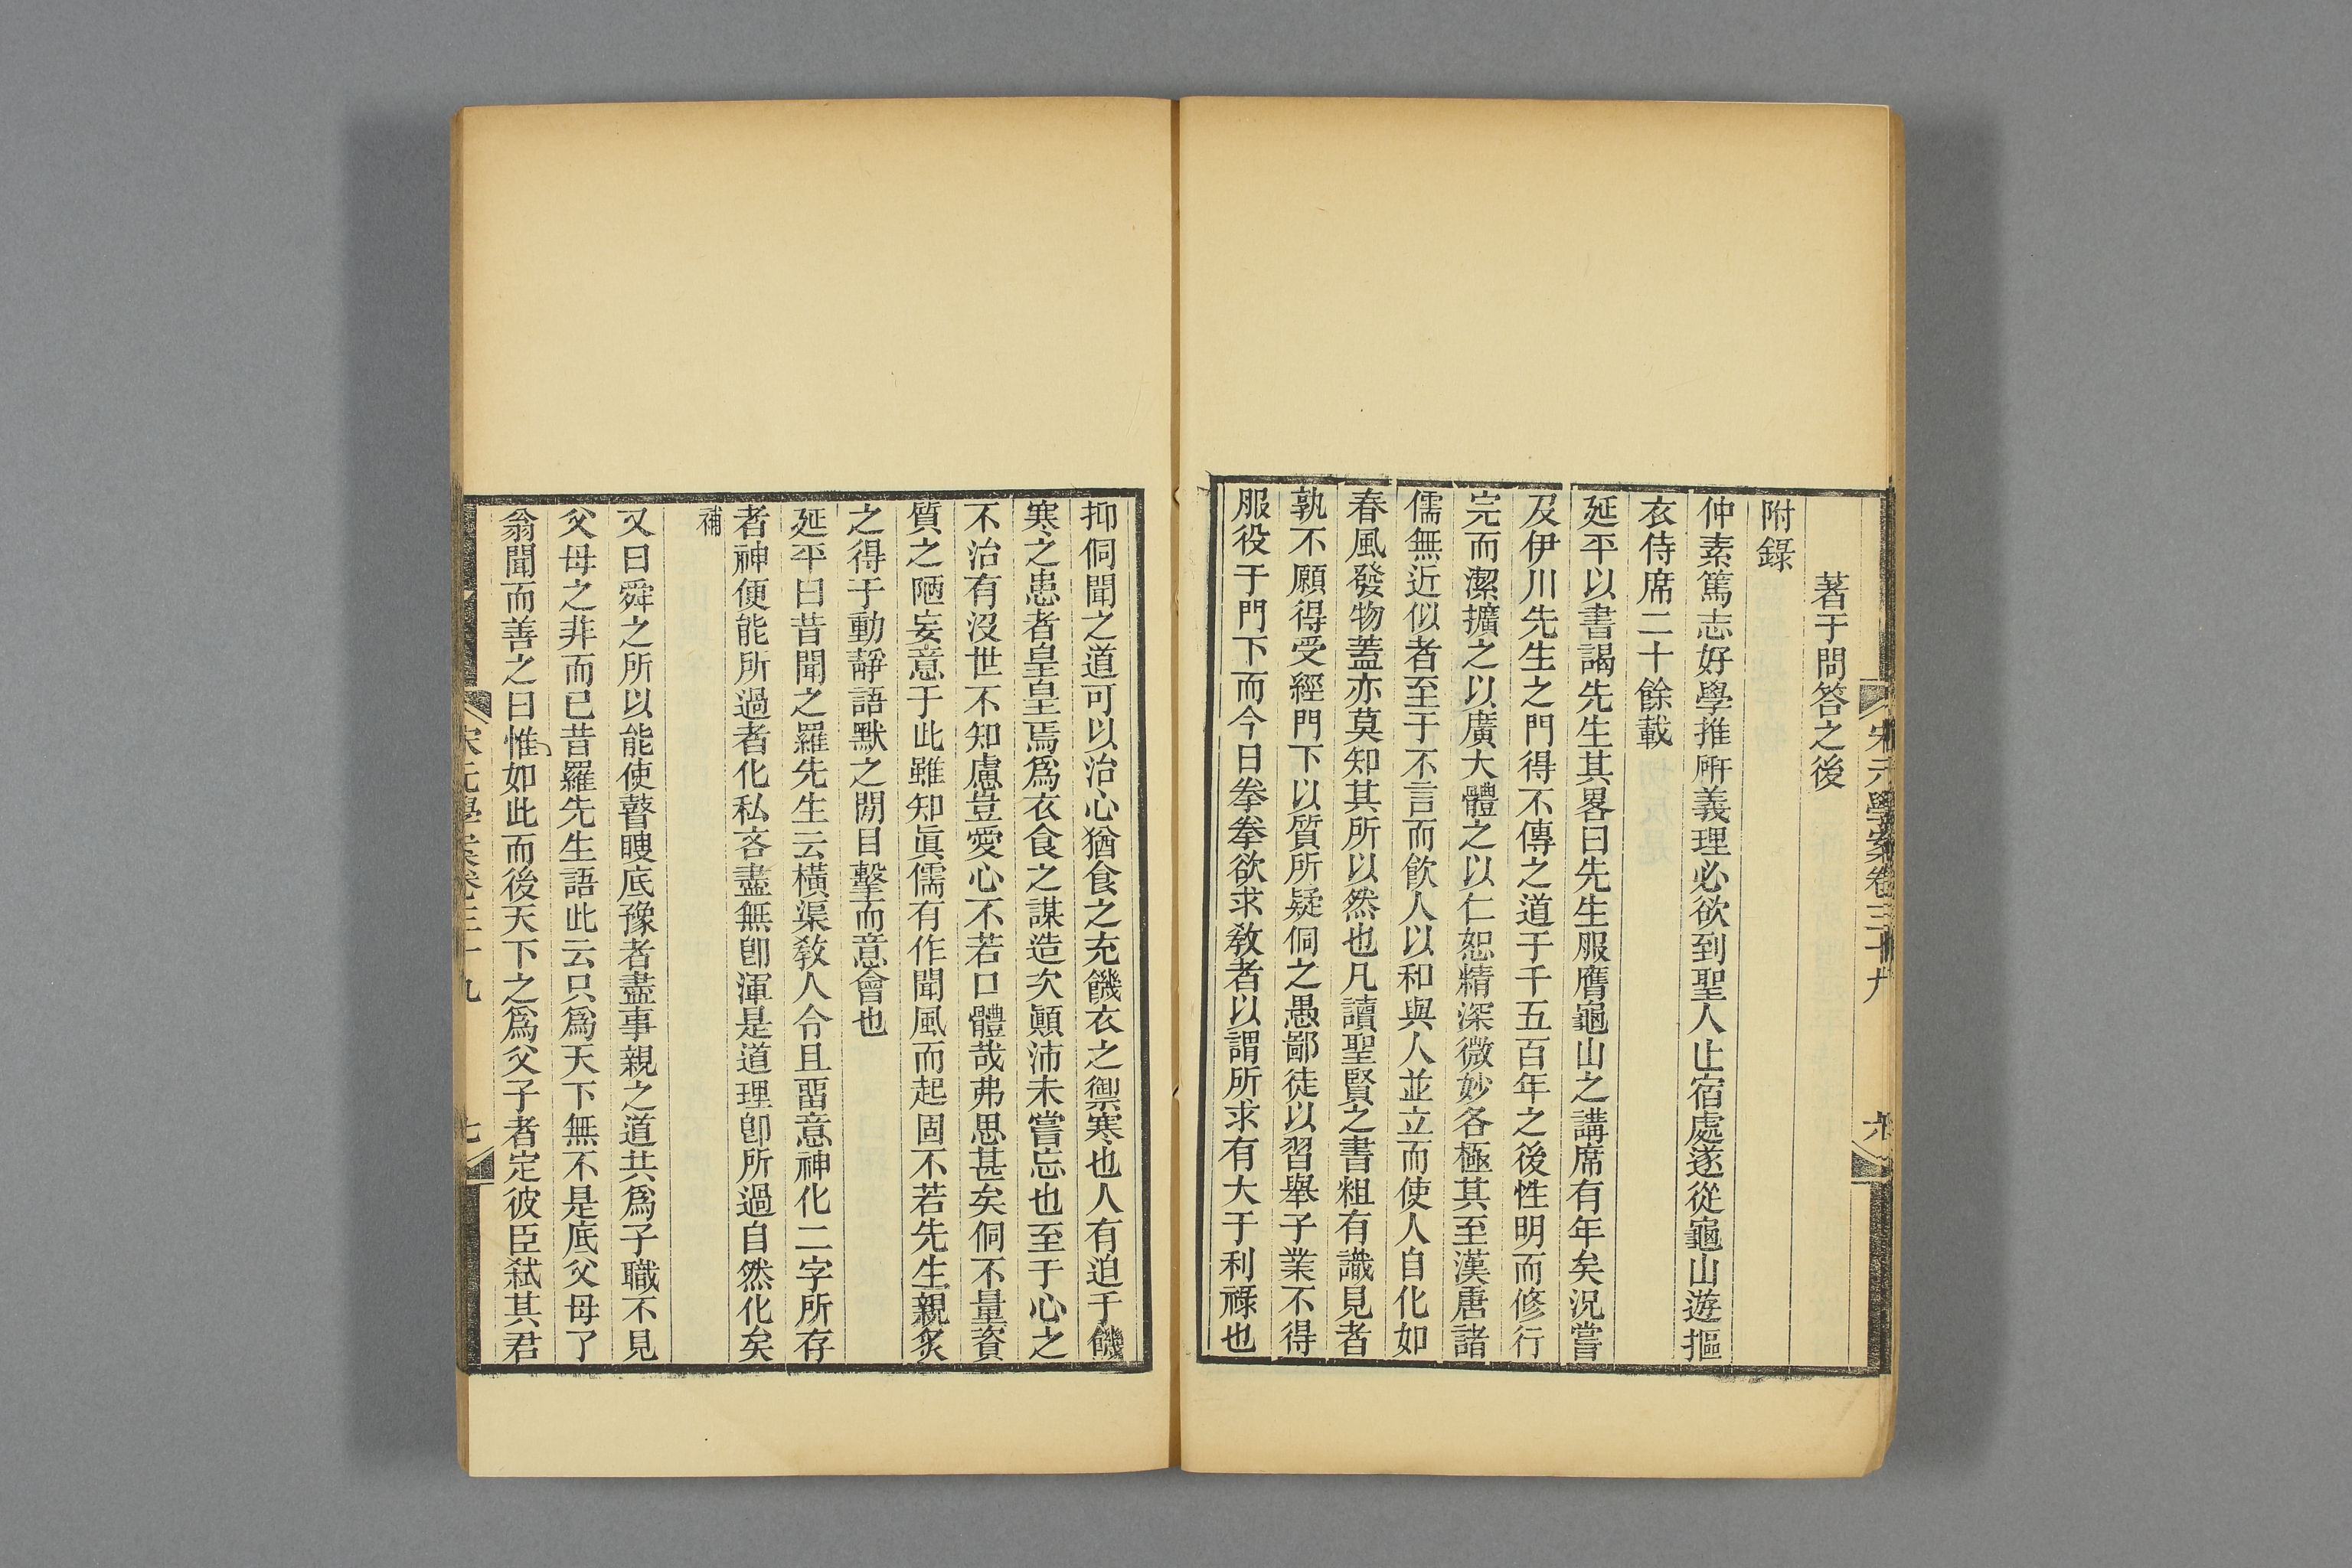 宋元學案卷三十九
六
著于問答之後
附錄
仲素篤志好學推硏義理必欲到聖人止宿處遂從龜山遊摳
衣侍席二十餘載
延平以書謁先生其畧曰先生服膺龜山之講席有年矣況嘗
及伊川先生之門得不傳之道于千五百年之後性明而修行
完而潔擴之以廣大體之以仁恕精深微妙各極其至漢唐諸
儒無近似者至于不言而飮人以和與人並立而使人自化如
春風發物蓋亦莫知其所以然也凡讀聖賢之書粗有識見者
孰不願得受經門下以質所疑侗之愚鄙徒以習舉子業不得
服役于門下而今日拳拳欲求敎者以謂所求有大于利祿也
抑侗聞之道可以治心猶食之充饑衣之禦寒也人有迫于饑
寒之患者皇皇焉爲衣食之謀造次顚沛未嘗忘也至于心之
不治有沒世不知慮豈愛心不若口體哉弗思甚矣侗不量資
質之陋妄意于此雖知眞儒有作聞風而起固不若先生親炙
之得于動靜語默之閒目擊而意會也
延平曰昔聞之羅先生云橫渠敎人令且畱意神化二字所存
者神便能所過者化私吝盡無卽渾是道理卽所過自然化矣
補
又曰舜之所以能使瞽瞍底豫者盡事親之道共爲子職不見
父母之非而已昔羅先生語此云只爲天下無不是底父母了
翁聞而善之曰惟如此而後天下之爲父子者定彼臣弑其君
宋元學案卷三十九
七